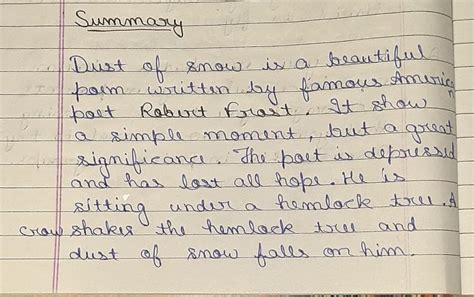 Summary
Dust of snow is a beautiful
poem written by famous American
poet Robert Frost. It show
a simple moment, but a great
significance. The poet is depressed
and has lost all hope. He is
sitting under a hemlock tree. A
crow shakes the hemlock tree and
dust of snow falls on him.